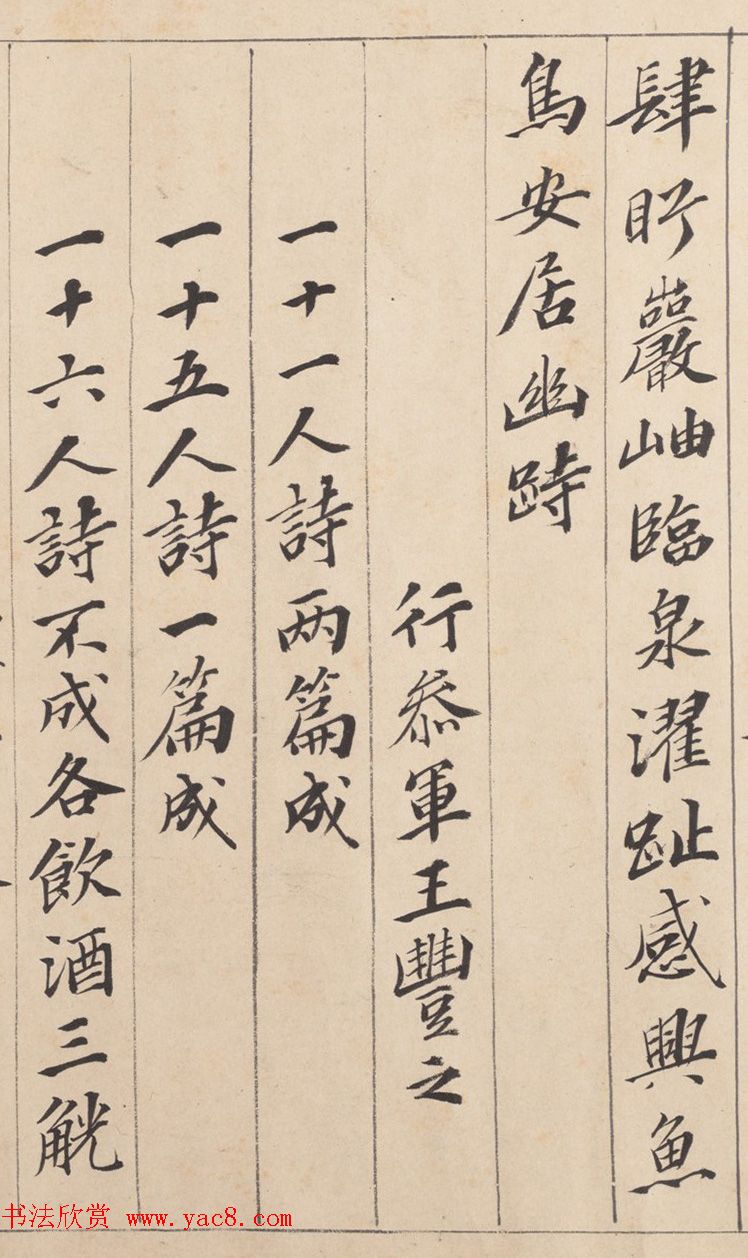 肆盱巖岫臨泉濯趾感興魚
鳥安居幽跱
行叅軍王豐之
一十一人詩两篇成
一十五人詩一篇成
一十六人詩不成各飲酒三觥
书法欣赏 www.yac8.com